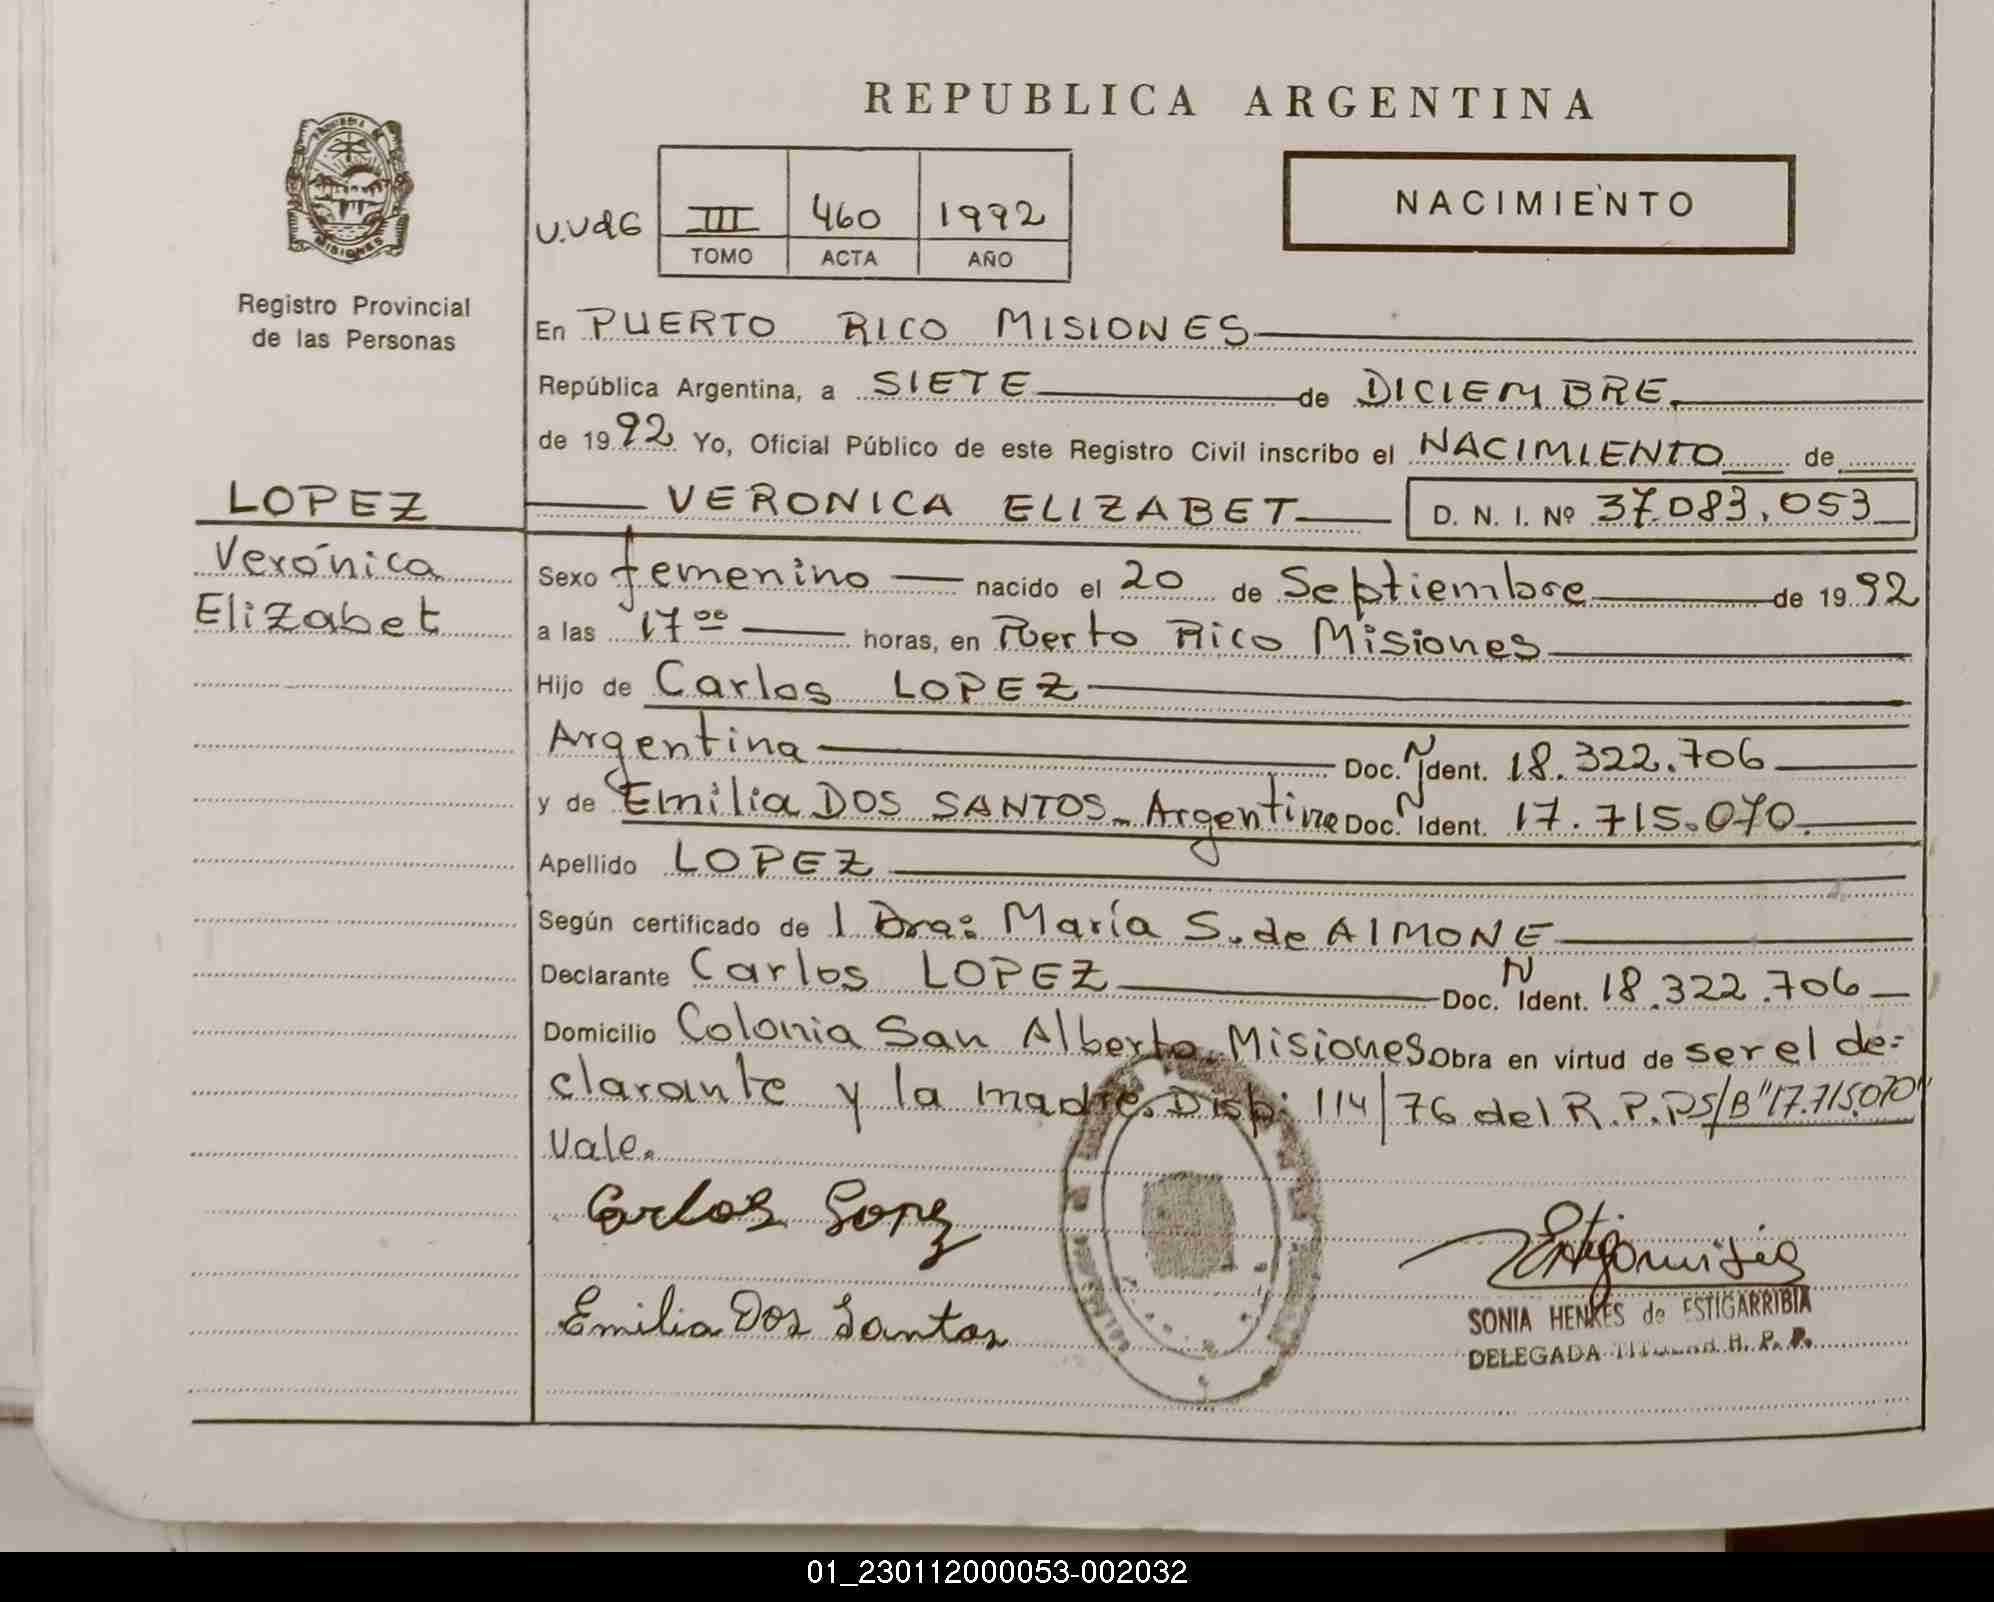 REPUBLICA ARGENTINA
NACIMIENTO
III 460 1992
TOMO ACTA AÑO
MISIONES
Registro Provincial
de las Personas
En PUERTO RICO MISIONES
República Argentina, a SIETE de DICIEMBRE.
de 1992 Yo, Oficial Público de este Registro Civil inscribo el NACIMIENTO de
LOPEZ
VERONICA ELIZABET D. N. I. Nº 37.083.053
Verónica
Elizabet
Sexo femenino nacido el 20 de Septiembre de 1992
a las 17 00 horas, en Puerto Rico Misiones
Hijo de Carlos LOPEZ
Argentina Doc. N Ident. 18.322.706
y de Emilia DOS SANTOS - Argentina Doc. N Ident. 17.715.070.
Apellido LOPEZ
Según certificado de l Dra: María S. de AIMONE
Declarante Carlos LOPEZ Doc. N Ident. 18.322.706
Domicilio Colonia San Alberto Misiones Obra en virtud de ser el de=
clarante y la madre. Disp: 114/76 del R.P.P S/B "17.715.070"
Vale.
Carlos Lopez
Emilia Dos Santos
SONIA HENKES de ESTIGARRIBIA
DELEGADA R. P. P.
01_230112000053-002032